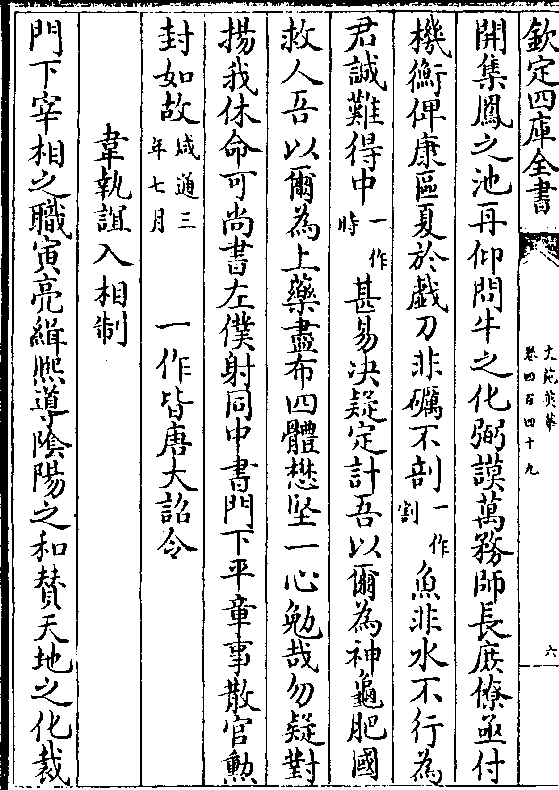 欽定四庫全書
文苑英華
卷四百四十九
六
開集鳳之池再仰問牛之化弼謨萬務師長庶僚亟付
機衡俾康區夏於戱刀非礪不剖一作割魚非水不行為
君誠難得中一作時甚易决疑定計吾以爾為神龜肥國
救人吾以爾為上藥盡布四體懋堅一心勉哉勿疑對
揚我休命可尚書左僕射同中書門下平章事散官勲
封如故咸通三年七月
韋執誼入相制　一作皆唐大詔令
門下宰相之職寅亮緝熙導陰陽之和賛天地之化裁